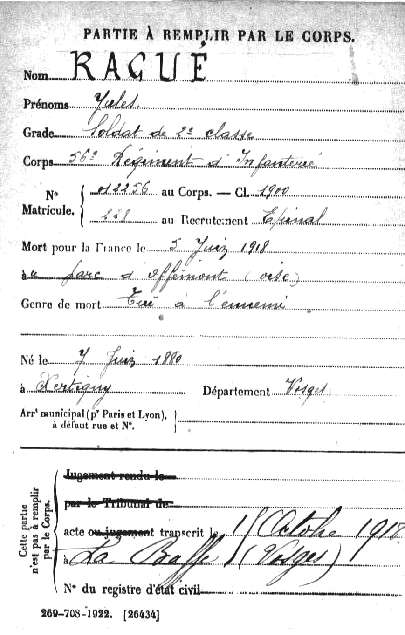 PARTIE À REMPLIR PAR LE CORPS.
Nom RAGUÉ
Prénoms Jules
Grade Soldat de 2e classe
Corps 56e Régiment d'Infanterie
No 012256 au Corps. — Cl. 1900
Matricule. 228 au Recrutement Epinal
Mort pour la France le 5 Juin 1918
au parc d'Offémont (oise)
Genre de mort Tué à l'ennemi
Né le 7 Juin 1880
à Xertigny Département Vosges
Arrt municipal (pr Paris et Lyon),
à défaut rue et No.
Cette partie
n'est pas à remplir
par le Corps.
Jugement rendu le
par le Tribunal de
acte ou jugement transcrit le Octobre 1918
à La Baffe (Vosges)
No du registre d'état civil
269-708-1922. [26434]